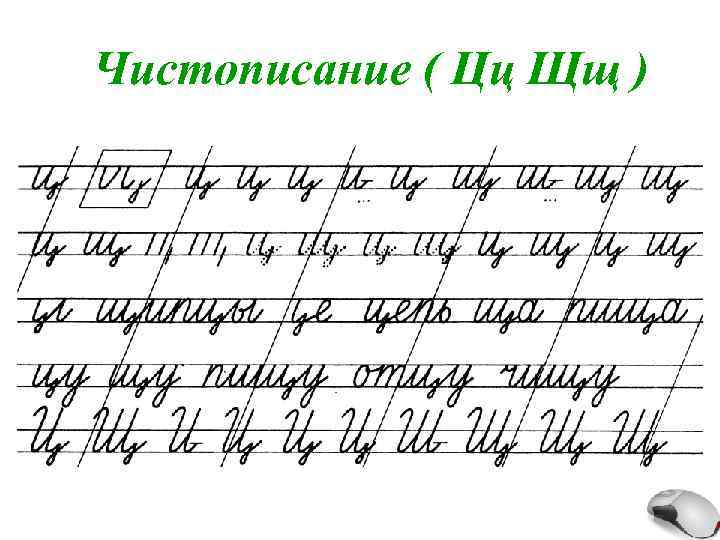 Чистописание ( Цц Щщ )
ц ц ц ц ц и ц щ ш щ щ
ц щ ц щ ц щ ц щ ц щ
цы щипцы це цепь ща пища
цу щу пищу отцу чищу
Ц Щ И Ц Ц Ц Ш Щ Щ Щ